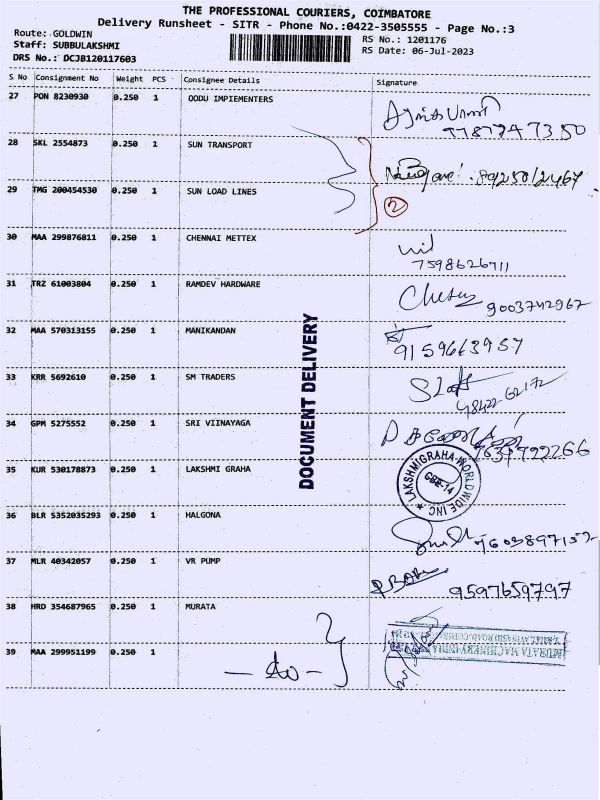 THE PROFESSIONAL COURIERS, COIMBATORE
Delivery Runsheet - SITR - Phone No.:0422-3505555 - Page No.:3
Route: GOLDWIN
Staff: SUBBULAKSHMI
DRS No.: DCJB120117603
RS No.: 1201176
RS Date: 06-Jul-2023
S No Consignment No Weight PCS Consignee Details Signature
27 PON 8230930 0.250 1 OODU IMPIEMENTERS
28 SKL 2554873 0.250 1 SUN TRANSPORT
29 TMG 200454530 0.250 1 SUN LOAD LINES
2
30 MAA 299876811 0.250 1 CHENNAI METTEX
31 TRZ 61003804 0.250 1 RAMDEV HARDWARE
9003742967
32 MAA 570313155 0.250 1 MANIKANDAN
33 KRR 5692610 0.250 1 SM TRADERS
34 GPM 5275552 0.250 1 SRI VIINAYAGA
35 KUR 530178873 0.250 1 LAKSHMI GRAHA
LAKSHMIGRAHA WORLDWIDE INC
CBE-14
36 BLR 5352035293 0.250 1 HALGONA
37 MLR 40342057 0.250 1 VR PUMP
9597659797
38 HRD 354687965 0.250 1 MURATA
MURATA MACHINERY INDIA
39 MAA 299951199 0.250 1
DOCUMENT DELIVERY